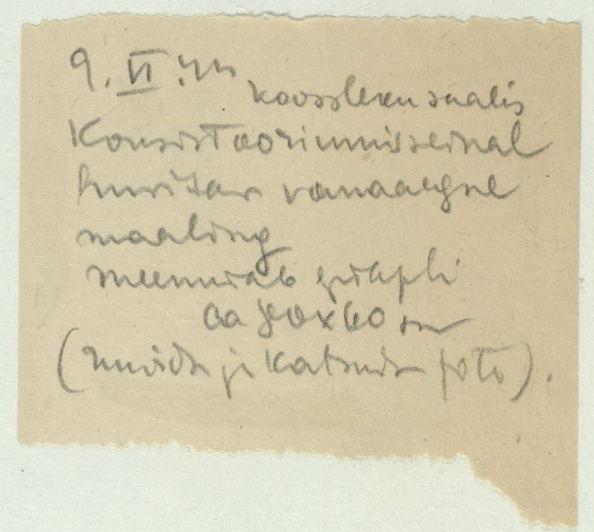 9. VI. 44
koosoleku saalis
Konsistooriumi seinal
huvitav vanaaegne
maaling
meenutab
ca 80x60 cm
( ja katsuda foto).